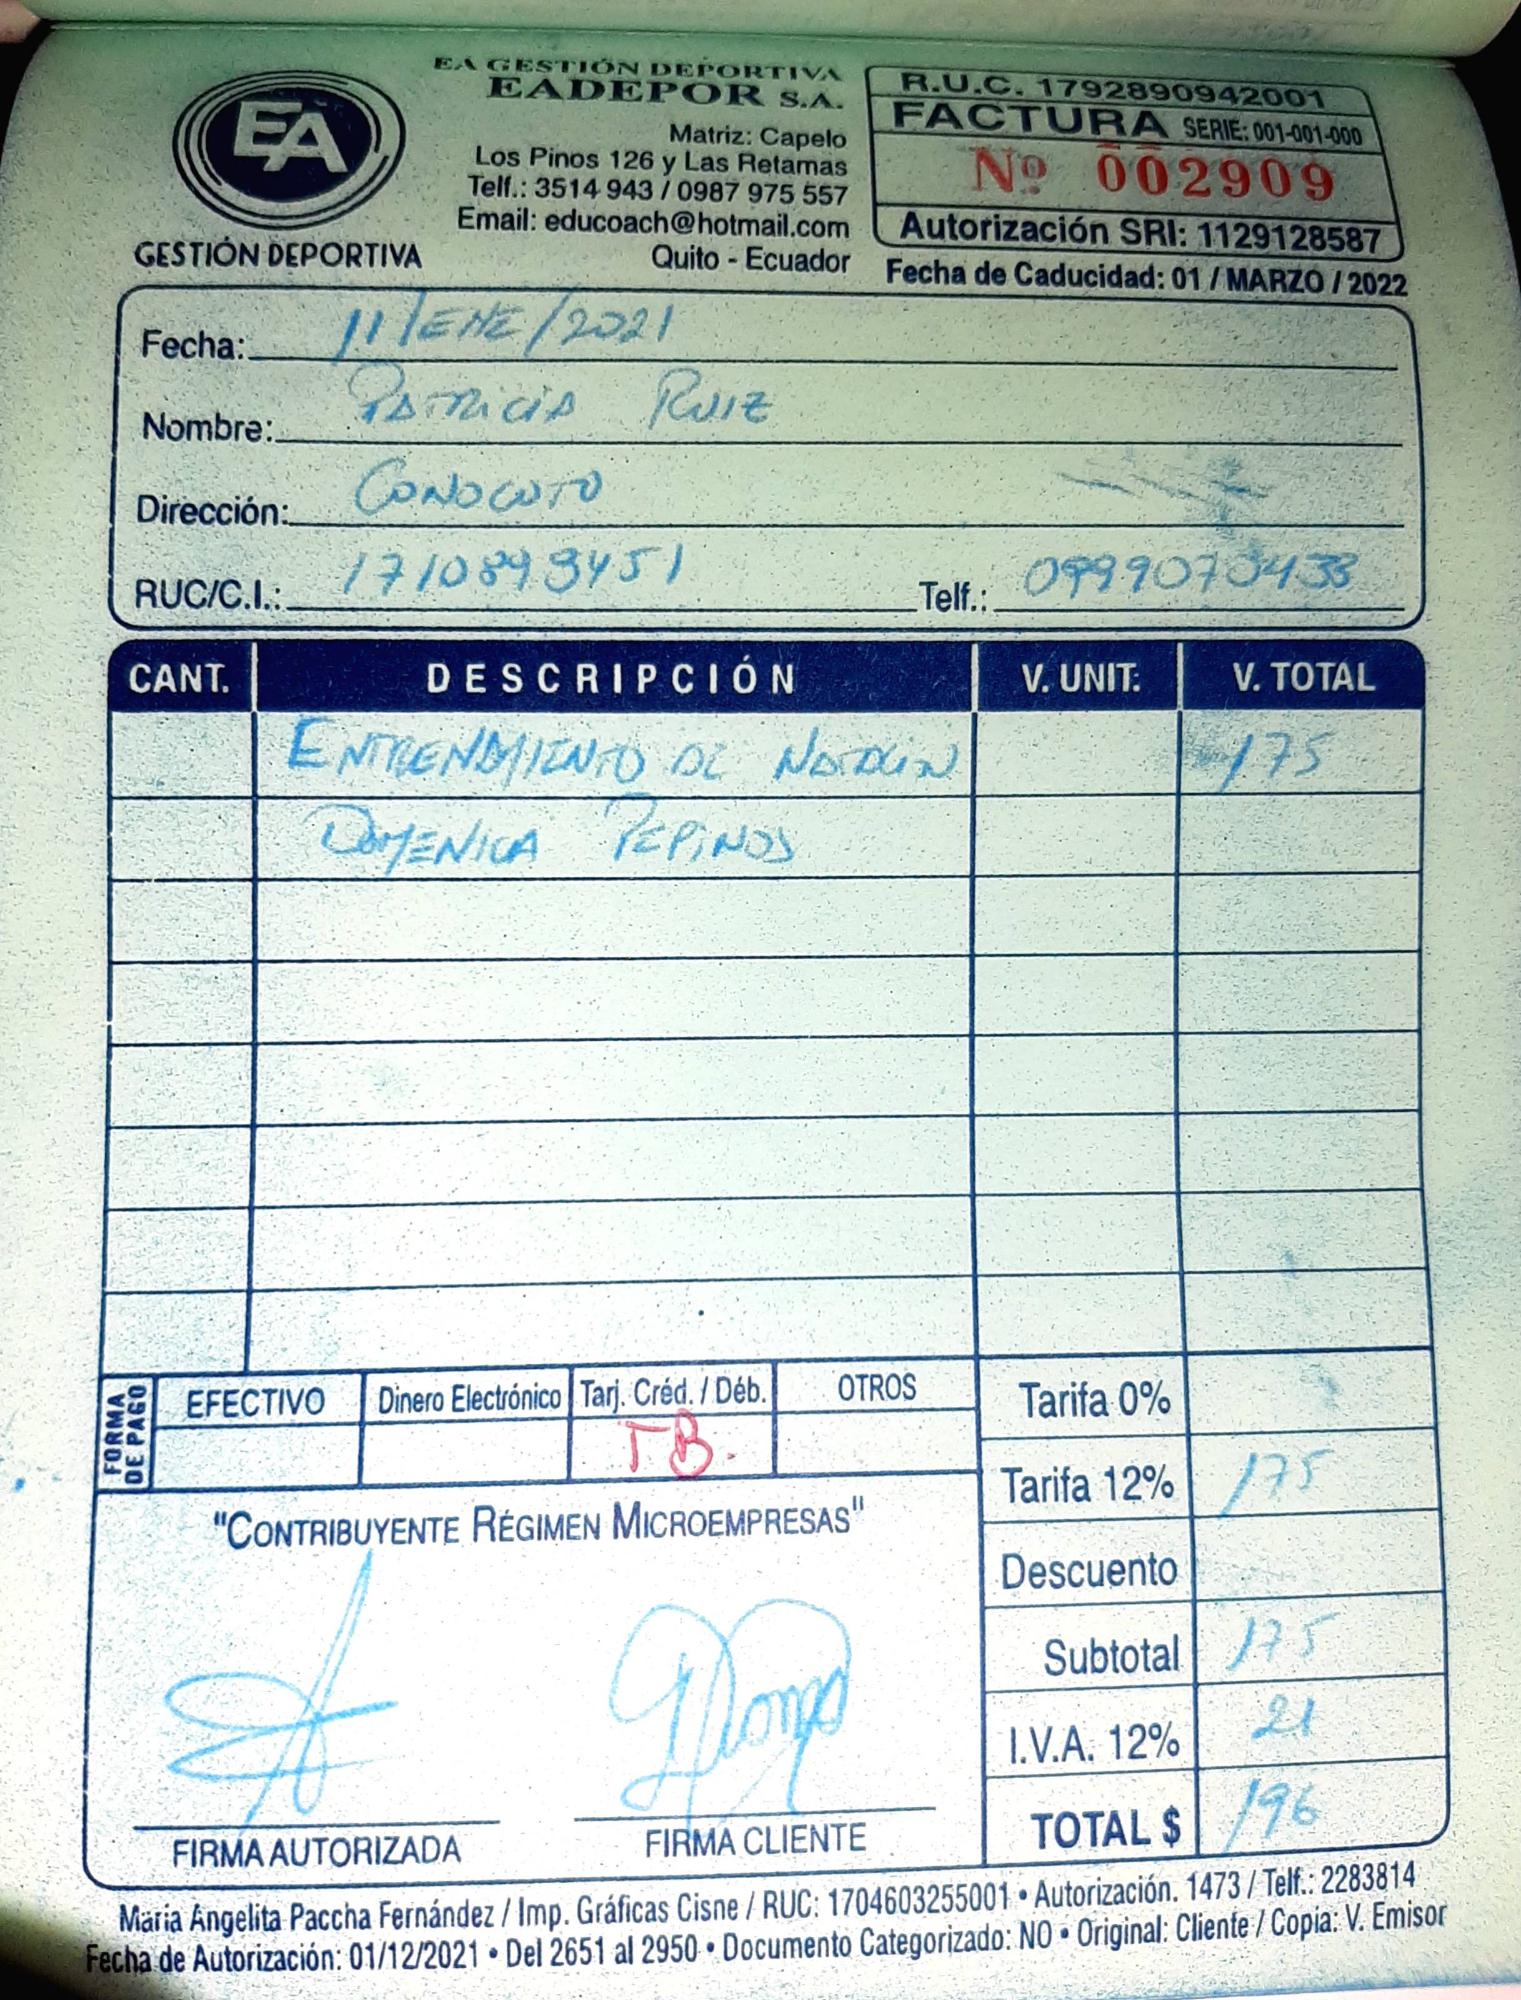 EA
GESTIÓN DEPORTIVA
EA GESTIÓN DEPORTIVA
EADEPOR S.A.
Matriz: Capelo
Los Pinos 126 y Las Retamas
Telf.: 3514 943 / 0987 975 557
Email: educoach@hotmail.com
Quito - Ecuador
R.U.C. 1792890942001
FACTURA SERIE: 001-001-000
Nº 002909
Autorización SRI: 1129128587
Fecha de Caducidad: 01 / MARZO / 2022
Fecha: 11/ENE/2021
Nombre: PATRICIA RUIZ
Dirección: CONOCOTO
RUC/C.I.: Telf.:
CANT. DESCRIPCIÓN V. UNIT. V. TOTAL
ENTRENAMIENTO DE NATACIÓN 175
DOMENICA PEPINOS
FORMA DE PAGO
EFECTIVO Dinero Electrónico Tarj. Créd. / Déb. OTROS
TB.
Tarifa 0%
Tarifa 12% 175
Descuento
Subtotal 175
I.V.A. 12% 21
TOTAL $ 196
"CONTRIBUYENTE RÉGIMEN MICROEMPRESAS"
FIRMA AUTORIZADA FIRMA CLIENTE
Maria Angelita Paccha Fernández / Imp. Gráficas Cisne / RUC: 1704603255001 • Autorización. 1473 / Telf.: 2283814
Fecha de Autorización: 01/12/2021 • Del 2651 al 2950 • Documento Categorizado: NO • Original: Cliente / Copia: V. Emisor